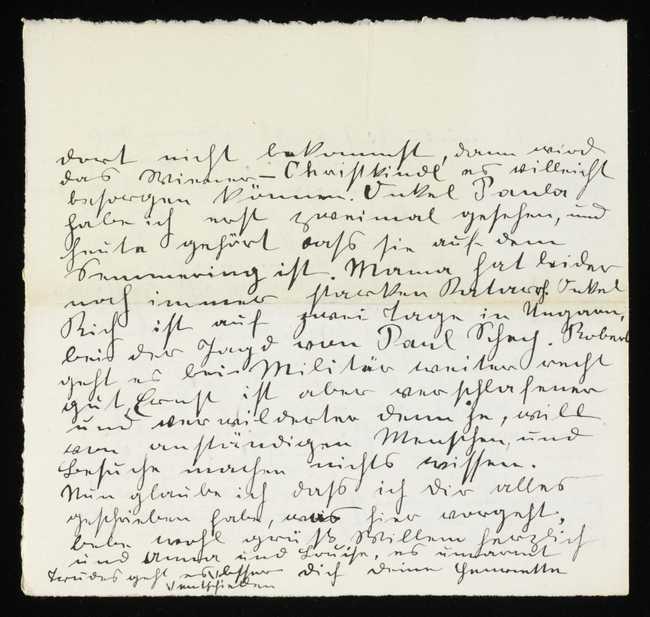 dort nicht bekommst, dann wird
das Wiener-Christkindl es villeicht
besorgen können. Onkel Paula
habe ich erst zweimal gesehen, und
heute gehört dass sie auf dem
Semmering ist. Mama hat leider
noch immer starken Katarrh. Onkel
Rich ist auf zwei Tage in Ungarn,
bei der Jagd von Paul Schey. Robert
geht es bei Militär weiter recht
gut, Ernst ist aber verschlafener
und verwilderter denn je, will
von anständigen Menschen, und
Besuche machen nichts wissen.
Nun glaube ich dass ich dir alles
geschrieben habe, was hier vorgeht,
lebe wohl grüss Willem herzlich
und Anna und Louise, es umarmt
Trudes geht es besser dich deine Henriette
entschieden